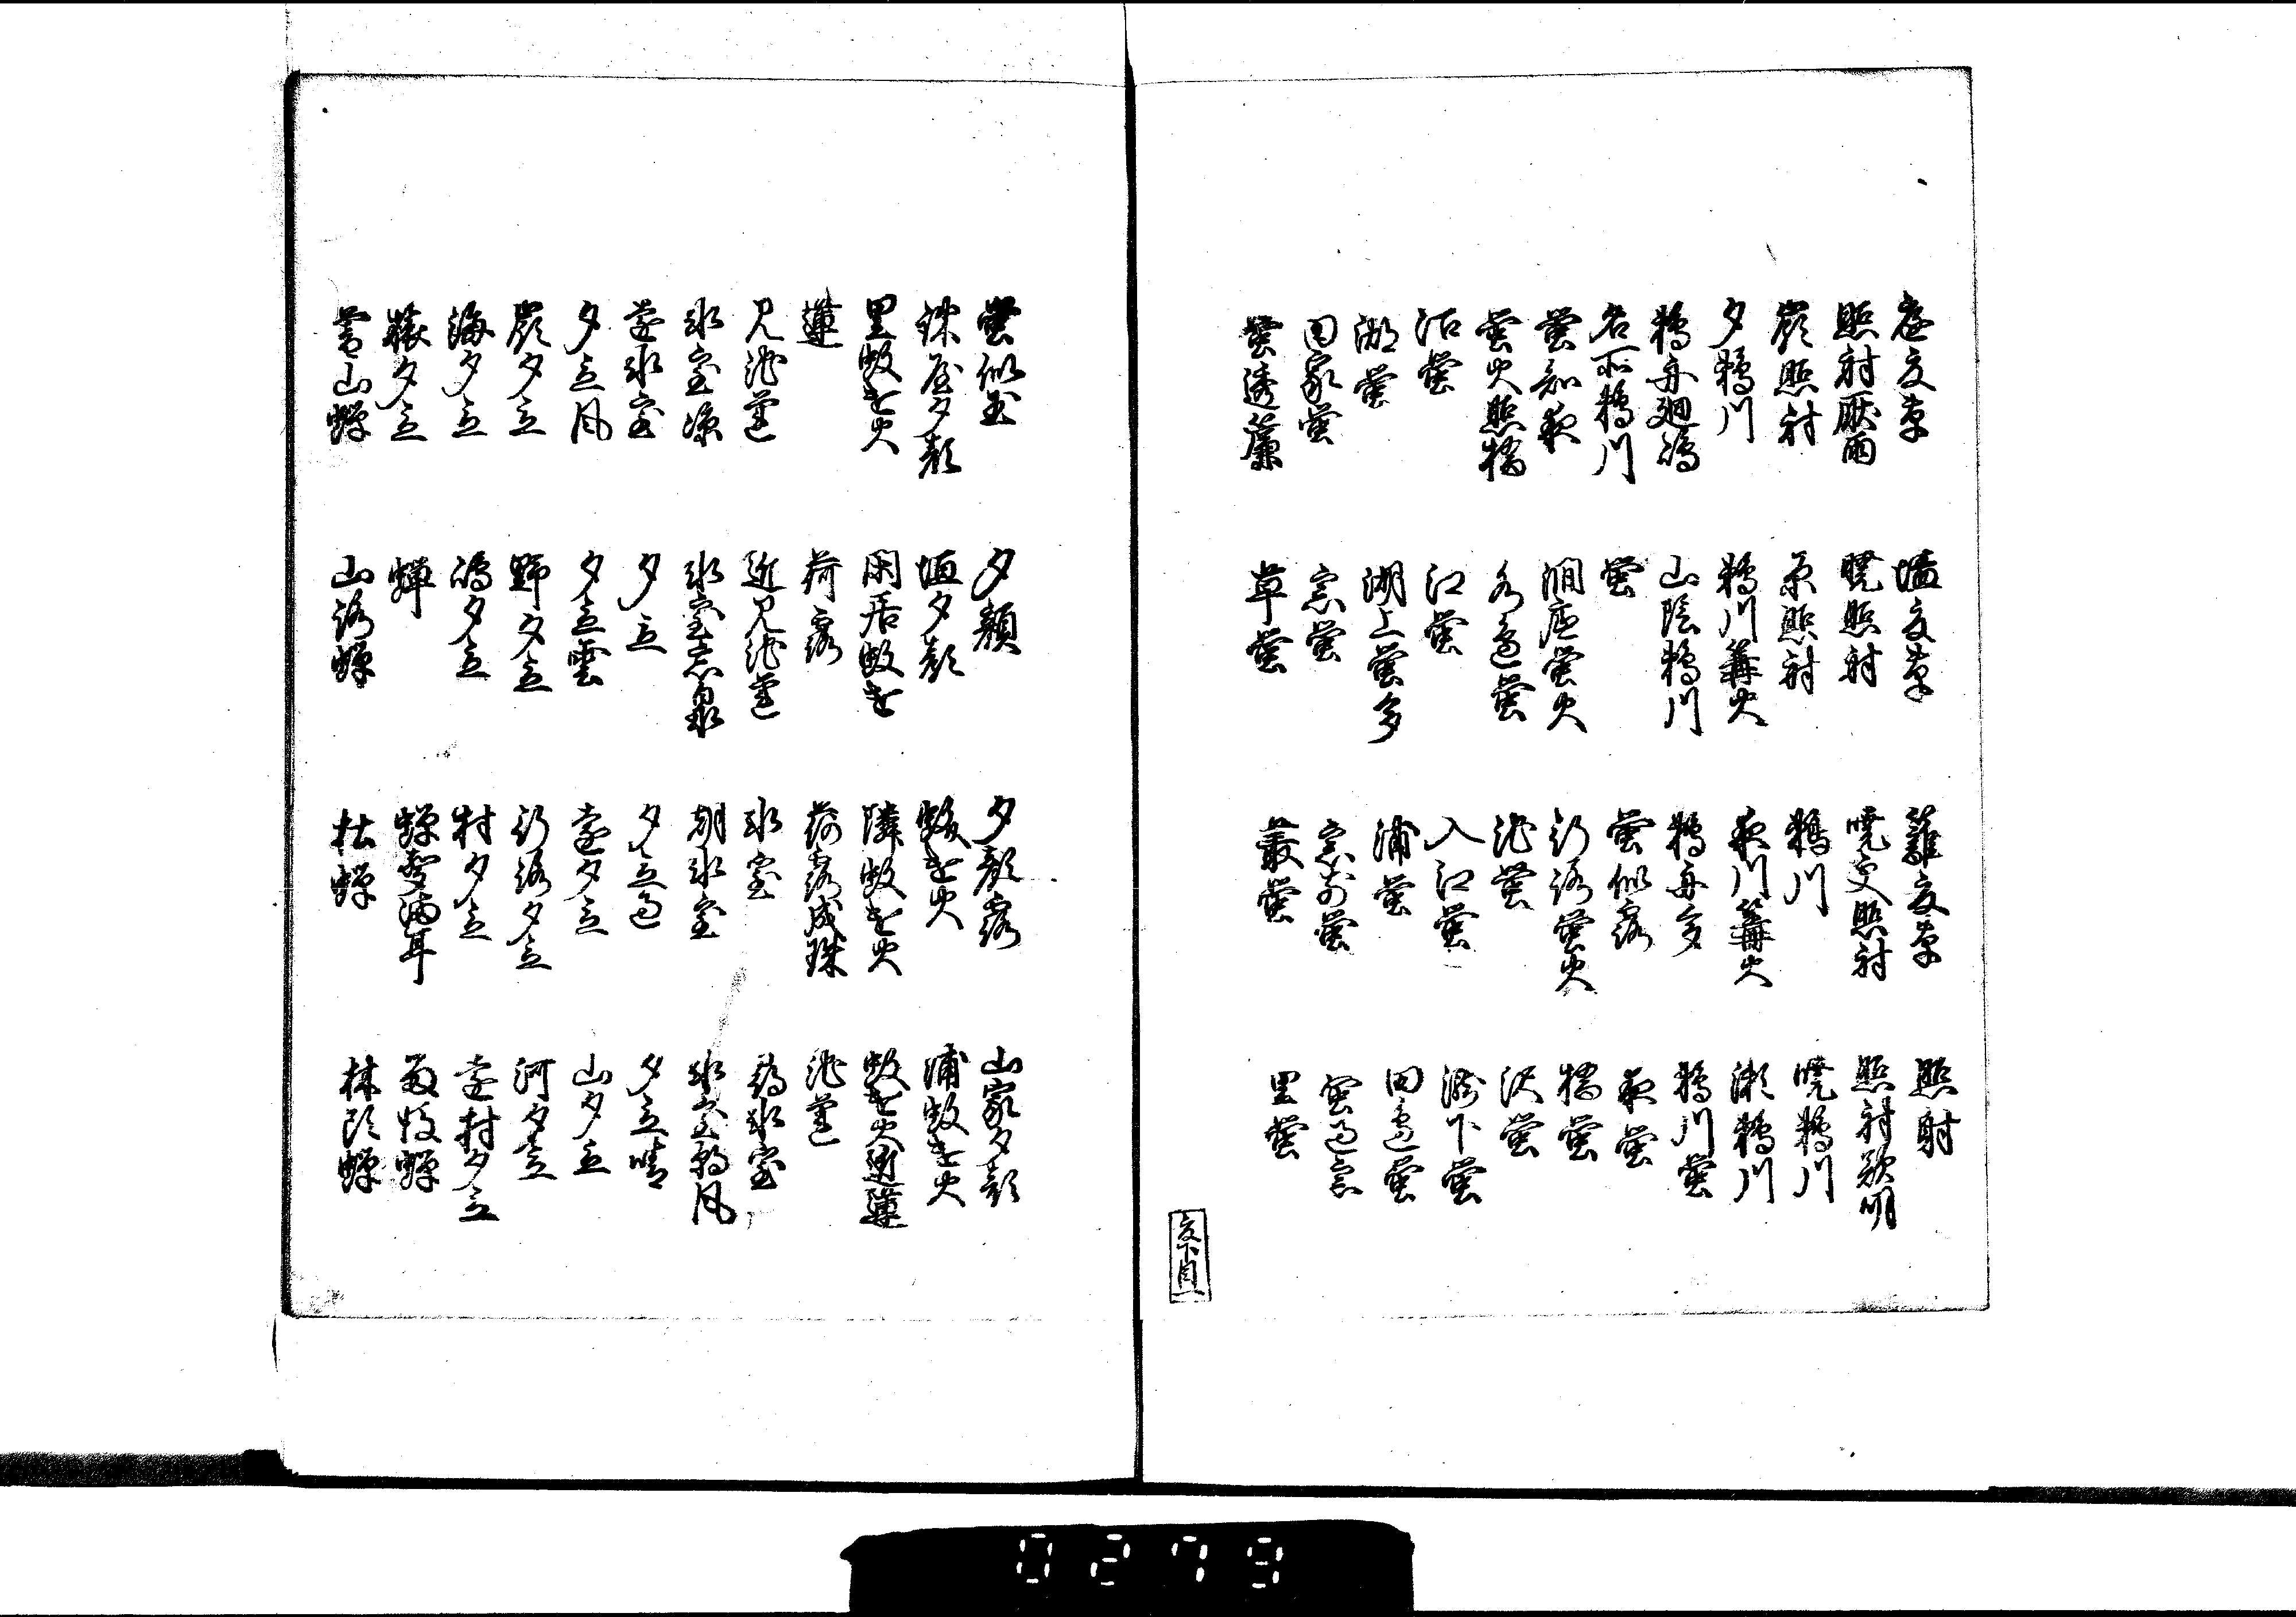 庭夏草 墻夏草 籬夏草 照射
照射厭雨 暁照射 暁更照射 照射欲明
嶺照射 原照射 鵜川 暁鵜川
夕鵜川 鵜川篝火 夜川篝火 瀬鵜川
鵜舟廻嶋 山陰鵜川 鵜舟多 鵜川螢
名所鵜川 螢 螢似露 夜螢
螢知夜 澗底螢火 行路螢火 橋螢
螢火照橋 水邊螢 池螢 沢螢
沼螢 江螢 入江螢 瀧下螢
湖螢 湖上螢多 浦螢 田邊螢
田家螢 窓螢 窓前螢 螢過窓
螢透簾 草螢 叢螢 里螢
夏下目一
螢似玉 夕顔 夕顔露 山家夕顔
疎屋夕顔 垣夕顔 蚊遣火 浦蚊遣火
里蚊遣火 閑居蚊遣 隣蚊遣火
蓮 荷露 荷露成珠 池蓮
見池蓮 近見池蓮 氷室
氷室凉 朝氷室
遠氷室 夕立 夕立過 夕立晴
夕立風 夕立雲 遠夕立 山夕立
嶺夕立 野夕立 行路夕立 河夕立
海夕立 嶋夕立 村夕立 遠村夕立
蝉 蝉聲満耳 雨後蝉
暮山蝉 山路蝉 杜蝉 林頭蝉
0279